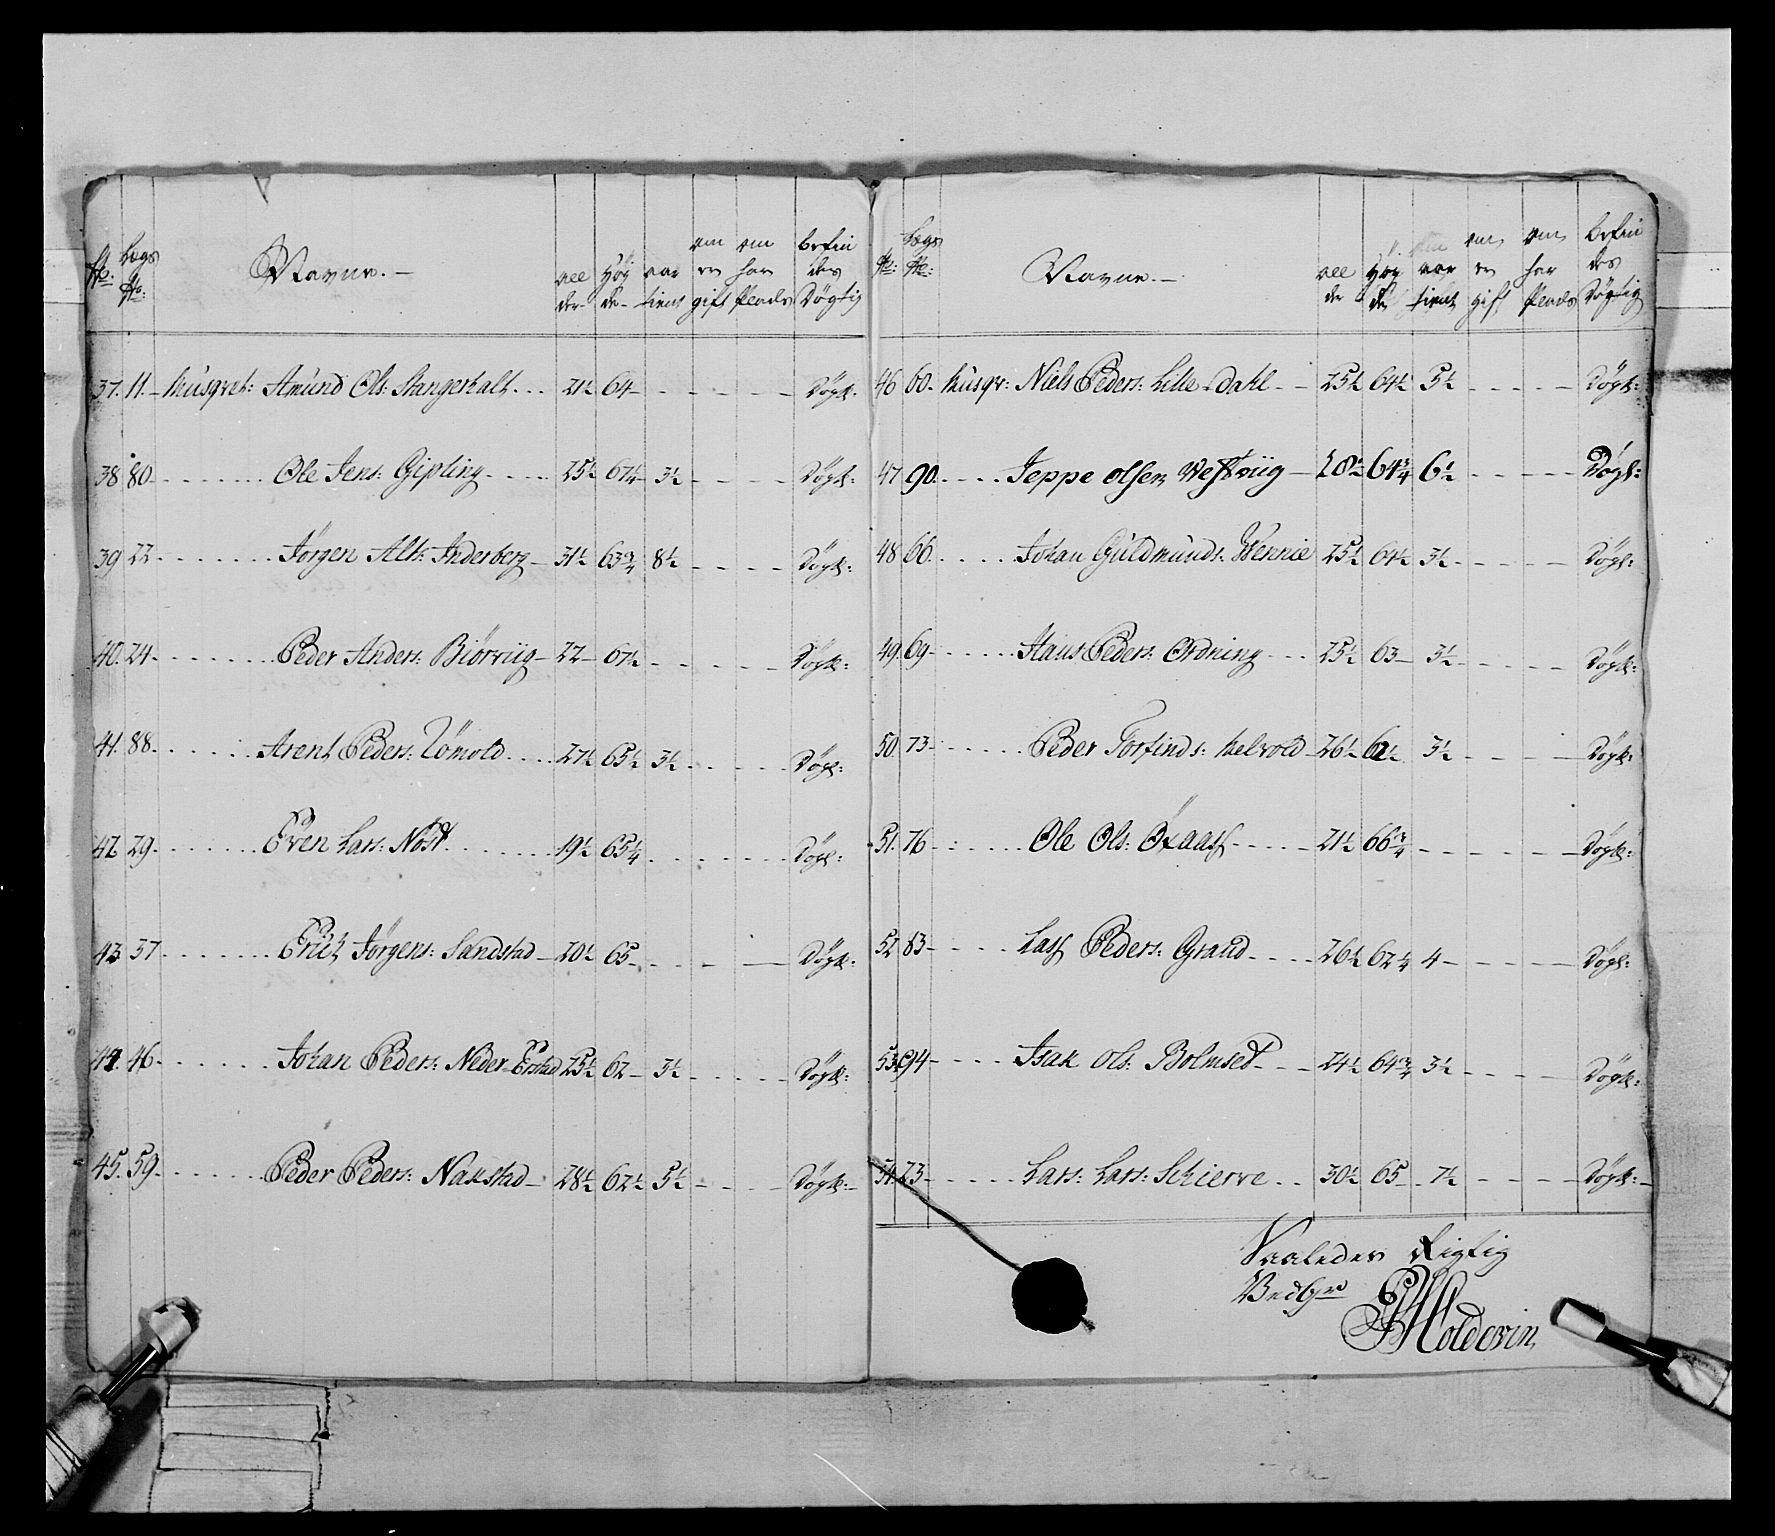 No: Lægs No: Navne. – all der Høy de aar tient om er gift om har Plads befin des Døgtig
37. 11. – Musqvet: Amund Ols: Stangerhalt ... 21½ 64 – – – – Døgt:
38 80. ....... Ole Jens: Gipling ..... 25½ 67¼ – 3½ – – – – Døgt:
39 22. ....... Jørgen Alb: Inderberg – 31½ 63¾ 8½ – – – – Døgt:
40. 24. ....... Peder Anders: Biørviig – 22 – 67½ – – – – Døgt:
41. 88. ..... Arent Peders: Tømold .... 27½ 65½ 3½ – – – – Døgt:
42 29. ..... Even Lars: Nøst ....... 19½ 65¼ – – – – Døgt:
43 37. ....... Erich Jørgens: Sandstad – 20½ 65 – – – – Døgt:
44. 46. ...... Johan Peders: Neder-Erstad 25½ 62 – 3½ – – – – Døgt:
45. 59. ..... Peder Peders: Naustad – 28½ 62½ 5½ – – – – Døgt: –
No: Lægs No: Navne. – all der Høy de aar tient om er gift om har Plads befin des Døgtig
46 60. Musqv: Niels Peders: Lille-Dahl – – 25½ 64½ 5½ – – – – Døgt:
47 90. .... Jeppe Olsen Westviig – 28½ 64¾ 6½ – – – – Døgt:
48 66. .... Johan Guldmunds: Wennie 25½ 64½ 3½ – – – – Døgt:
49. 69. ..... Hans Peders: Ordning – – – 25½ 63 – 3½ – – – – Døgt:
50. 73. ..... Peder Torfinds: Melvold – 26½ 62½ 3½ – – – – Døgt:
51. 76 ..... Ole Ols: Øxaass – – – – 21½ 66¾ – – – – Døgt:
52 83 – .... Lass Peders: Grand – – – 26½ 62¼ 4 – – – – Døgt:
53. 94 – .... Isak Ols: Bolmset – – – 24½ 64¾ 3½ – – – – Døgt:
54. 23 – ..... Lars: Lars: Schierve .. 30½ 65 – 7½ – – – – Døgt: –
Saaledes Rigtig
Holdorin